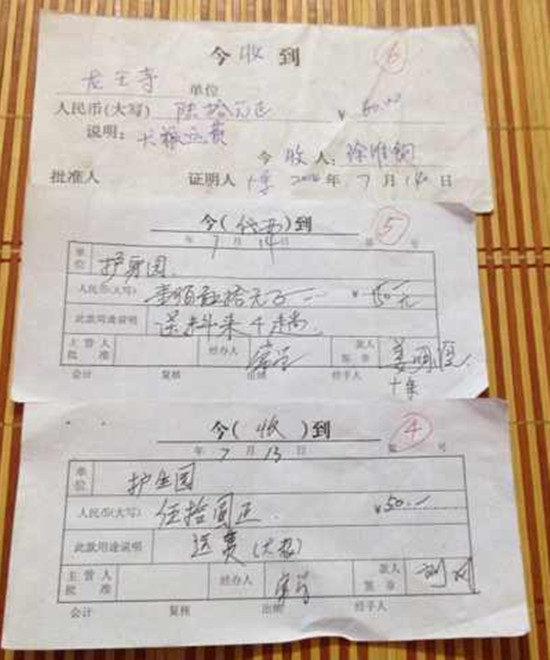 今 收 到
6
龙王寺 单位
人民币(大写) 陆拾元正 ¥ 60.00
说明: 犬粮运费
今 收 人:
批准人 证明人 年 7 月 14 日
今( )到
5
年 7 月 14 日 第 号
单位 护生园
人民币(大写) 壹佰伍拾元正 ¥ 150元
此款用途说明 送料来4趟
主管人批准 经办人 款人签章 姜明
会计 复核 出纳 经手人
今( 收 )到
4
年 7 月 13 日 第 号
单位 护生园
人民币(大写) 伍拾圆正 ¥50.—
此款用途说明 运费(犬粮)
主管人批准 经办人 款人签章 刘
会计 复核 出纳 经手人